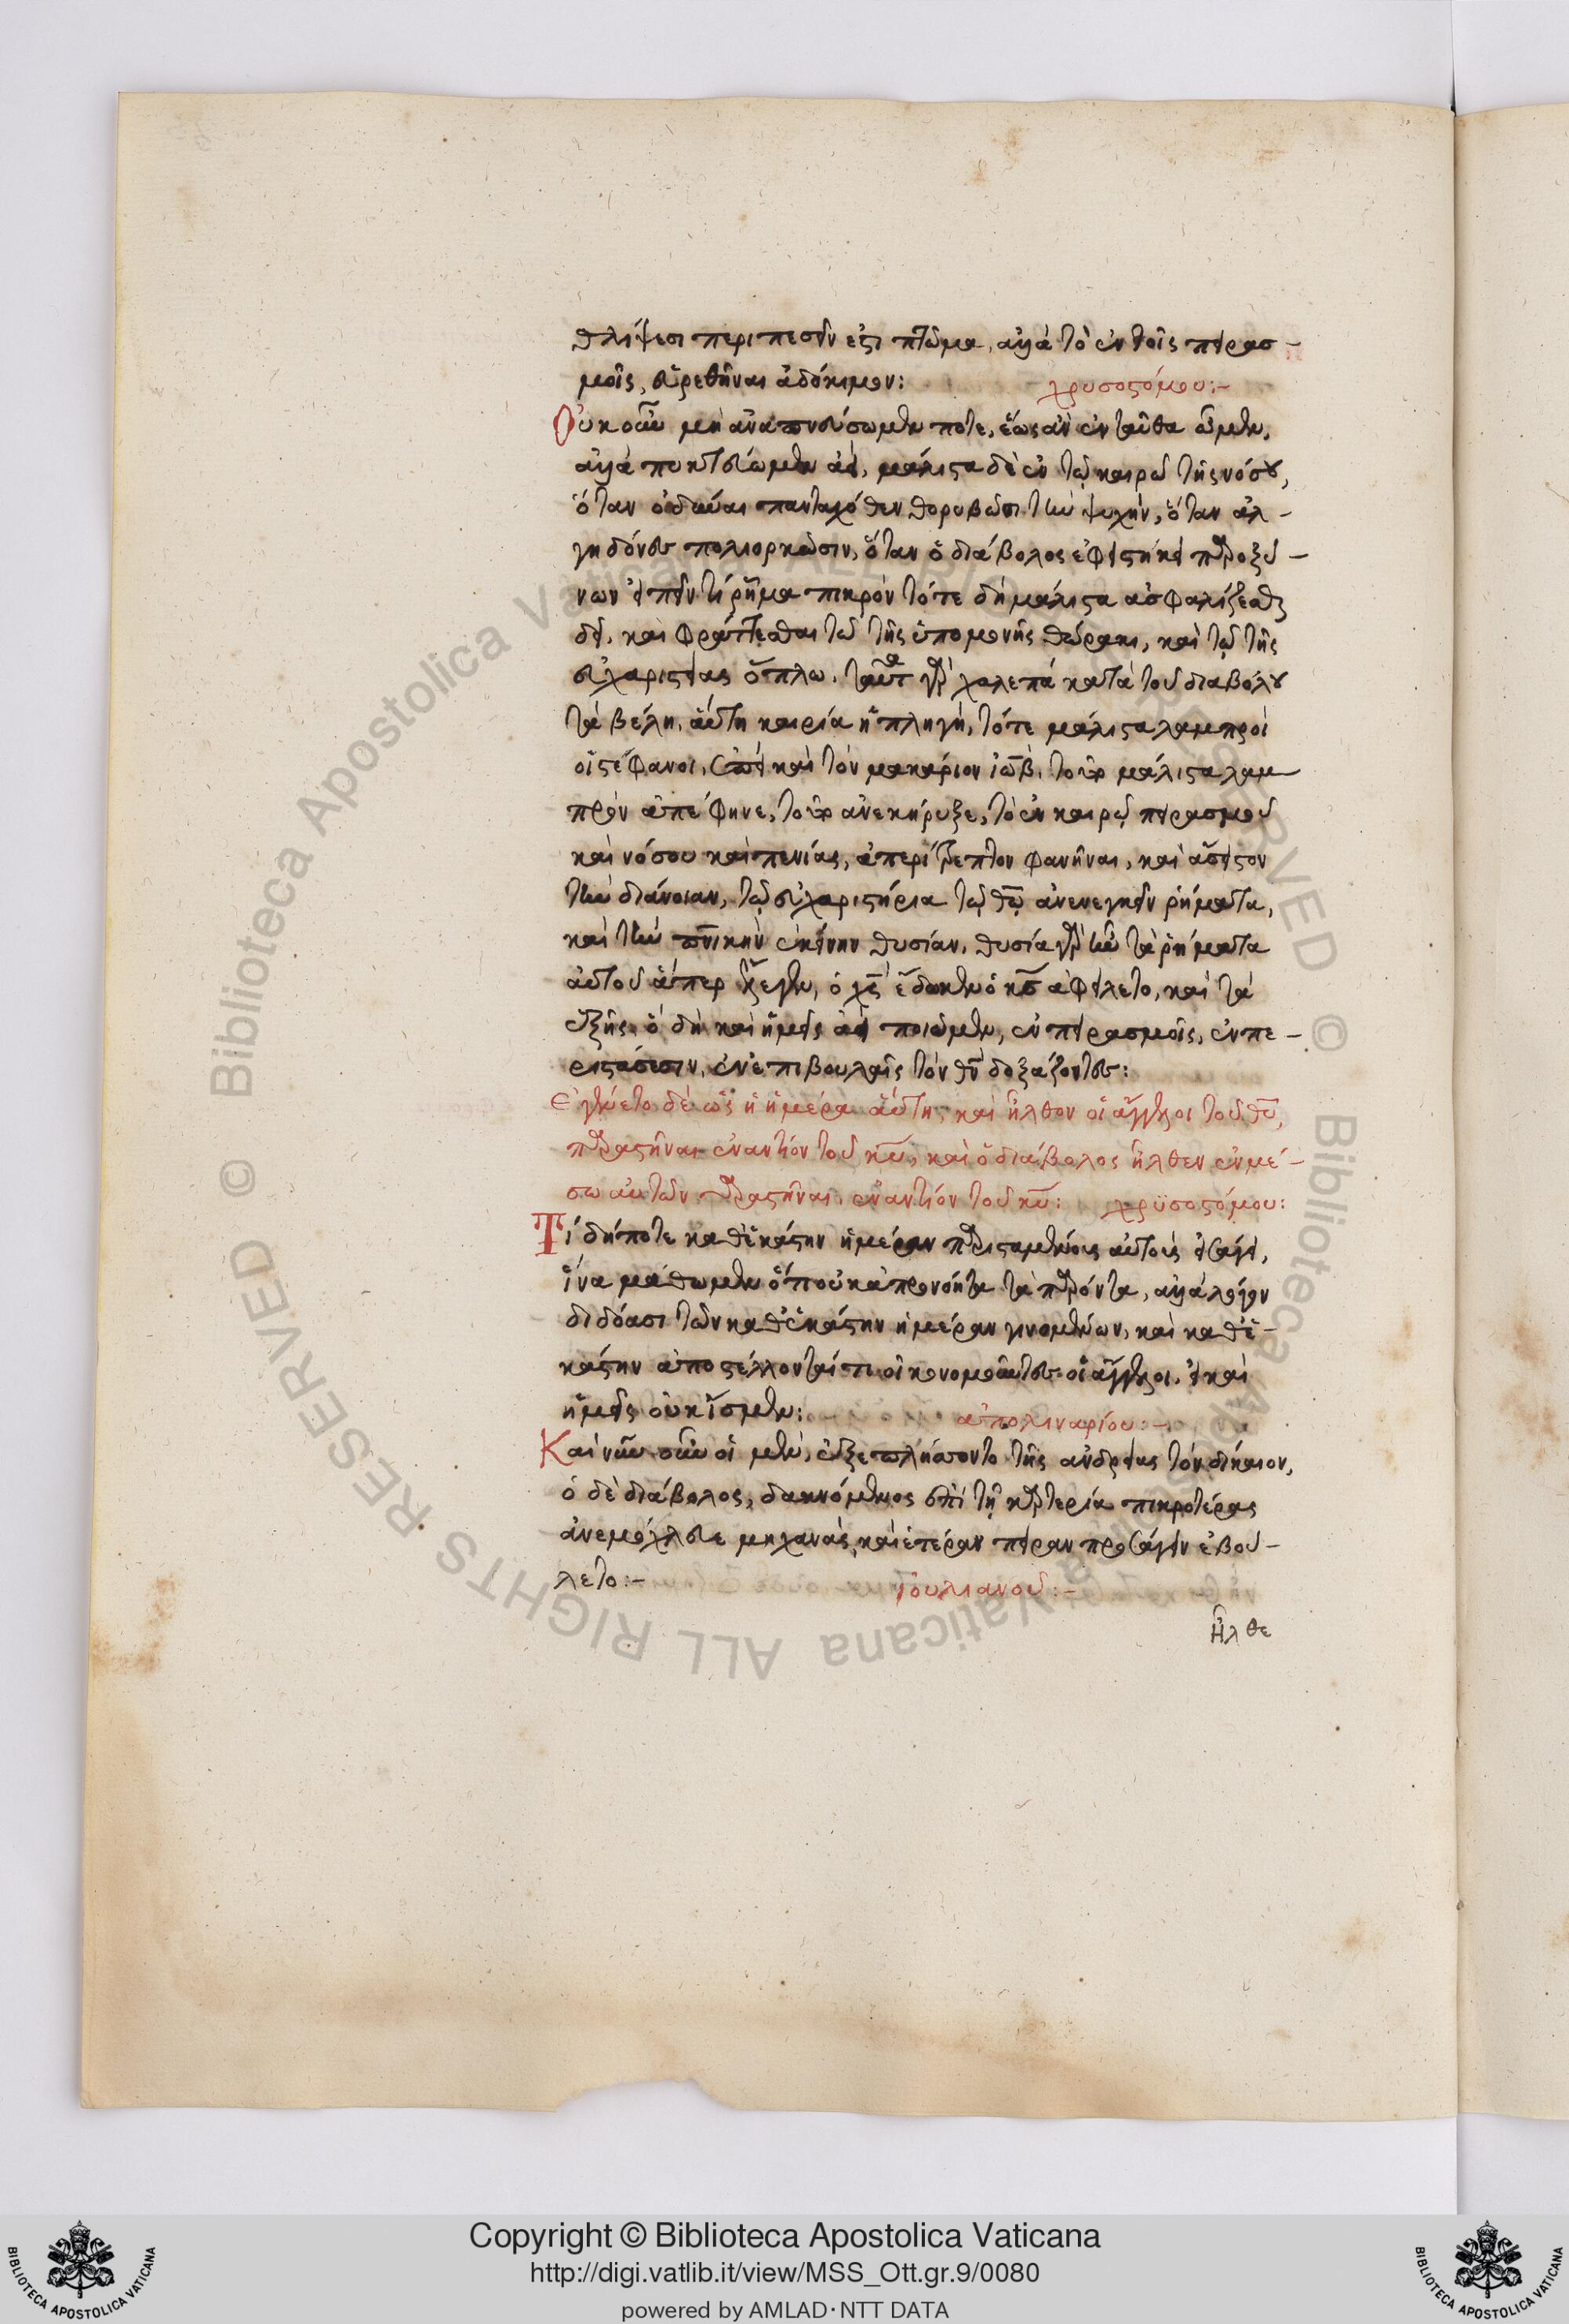 θλίψεσι περιπεσεῖν ἐστι πτῶμα, ἀλλὰ τὸ ἐν τοῖς πειρασ-
μοῖς, εὑρεθῆναι ἀδόκιμον: χρυσοστόμου:-
Οὐκοῦν μὴ ἀναπνεύσωμεν ποτε, ἕως ἂν ἐνταῦθα ὦμεν,
ἀλλὰ πυκτεύωμεν ἀεὶ, μάλιστα δὲ ἐν τῷ καιρῷ τῆς νόσου,
ὅταν ὀδύναι πανταχόθεν θορυβῶσι τὴν ψυχὴν, ὅταν ἀλ-
γηδόνες πολιορκῶσιν, ὅταν ὁ διάβολος ἐφεστήκει παροξύ-
νων εἰπεῖν τί ῥῆμα πικρὸν τότε δὴ μάλιστα ἀσφαλίζεσθαι
δεῖ, καὶ φράττεσθαι τῷ τῆς ὑπομονῆς θώρακι, καὶ τῷ τῆς
εὐχαριστείας ὅπλω. ταῦτα γὰρ χαλεπὰ κατὰ τοῦ διαβόλου
τὰ βέλη. αὕτη καιρία ἡ πληγὴ, τότε μάλιστα λαμπροὶ
οἱ στέφανοι, ἐπεὶ καὶ τὸν μακάριον ἰὼβ, τοῦτο μάλιστα λαμ
πρὸν ἀπέφηνε, τοῦτο ἀνεκήρυξε, τὸ ἐν καιρῷ πειρασμοῦ
καὶ νόσου καὶ πενίας, ἀπερίτρεπτον φανῆναι, καὶ ἄσειστον
τὴν διάνοιαν, τῷ εὐχαριστήρια τῷ θῶ ἀνενεγκεῖν ῥήματα,
καὶ τὴν πνικὴν ἐκείνην θυσίαν. θυσία γὰρ ἦν τὰ ῥήματα
αὐτοῦ ἅπερ ἔλεγεν, ὁ κς ἔδωκεν ὁ κς ἀφείλετο, καὶ τὰ
ἑξῆς. ὃ δὴ καὶ ἡμεῖς ἀεὶ ποιῶμεν, ἐν πειρασμοῖς, ἐν πε-
ριστάσεσιν, ἐν ἐπιβουλαῖς τὸν θν δοξάζοντες:
Ἐγένετο δὲ ὡς ἡ ἡμέρα αὕτη, καὶ ἦλθον οἱ ἄγγελοι τοῦ θυ,
παραστῆναι ἐναντίον τοῦ κυ, καὶ ὁ διάβολος ἦλθεν ἐν μέ-
σω αὐτῶν παραστῆναι ἐναντίον τοῦ κυ: χρυσοστόμου:
Τί δήποτε καθ' ἑκάστην ἡμέραν παρισταμένους αὐτοὺς εἰσάγει,
ἵνα μάθωμεν ὅτι οὐκ ἀπρονόητα τὰ παρόντα, ἀλλὰ λόγον
διδόασι τῶν καθ' ἑκάστην ἡμέραν γινομένων, καὶ καθ' ἑ-
κάστην ἀποστέλλονταί τι οἰκονομοῦντες οἱ ἄγγελοι, εἰ καὶ
ἡμεῖς οὐκ ἴσμεν: ἀπολιναρίου:-
Καὶ νῦν οὖν οἱ μὲν, ἐξεπλήττοντο τῆς ἀνδρείας τὸν δίκαιον,
ὁ δὲ διάβολος, δακνόμενος ἐπὶ τῇ καρτερία πικροτέρας
ἀνεμόχλευε μηχανὰς, καὶ ἑτέραν πεῖραν προσάγειν ἐβού-
λετο:- Ἰουλιανοῦ:-
Ἦλθε
Copyright © Biblioteca Apostolica Vaticana
http://digi.vatlib.it/view/MSS_Ott.gr.9/0080
powered by AMLAD·NTT DATA